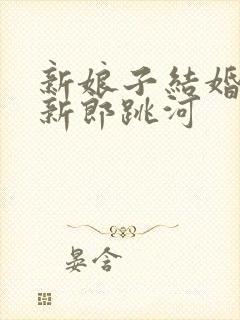 新娘子結婚
新郎跳河
晏含